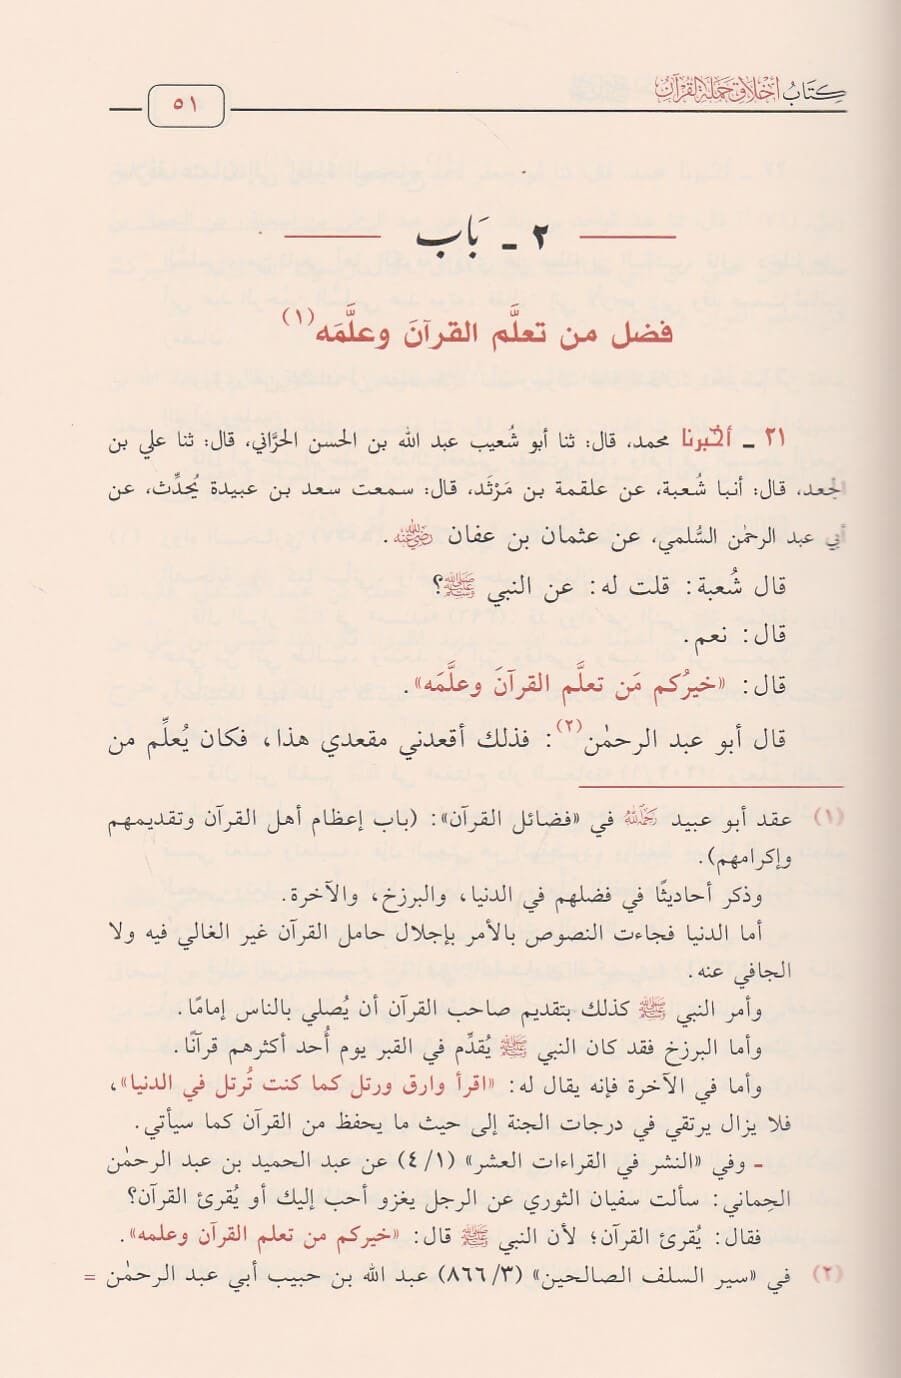 كِتَابُ أَخْلَاق حَمَلَة القُرْآن
٥١
٢ ـ بَاب
فضل من تعلَّم القرآنَ وعلَّمَه(١)
٢١ ـ أخبرنا محمد، قال: ثنا أبو شُعيب عبد الله بن الحسن الحرَّاني، قال: ثنا علي بن
الجعد، قال: أنبا شُعبة، عن علقمة بن مَرْثَد، قال: سمعت سعد بن عبيدة يُحدِّث، عن
أبي عبد الرحمٰن السُّلمي، عن عثمان بن عفان رضي الله عنه.
قال شُعبة: قلت له: عن النبي ﷺ؟
قال: نعم.
قال: «خيرُكم مَن تعلَّم القرآنَ وعلَّمَه».
قال أبو عبد الرحمٰن(٢): فذلك أقعدني مقعدي هذا، فكان يُعلِّم من
(١) عقد أبو عبيد رحمه الله في «فضائل القرآن»: (باب إعظام أهل القرآن وتقديمهم
وإكرامهم).
وذكر أحاديثًا في فضلهم في الدنيا، والبرزخ، والآخرة.
أما الدنيا فجاءت النصوص بالأمر بإجلال حامل القرآن غير الغالي فيه ولا
الجافي عنه.
وأمر النبي ﷺ كذلك بتقديم صاحب القرآن أن يُصلي بالناس إمامًا.
وأما البرزخ فقد كان النبي ﷺ يُقدِّم في القبر يوم أُحد أكثرهم قرآنًا.
وأما في الآخرة فإنه يقال له: «اقرأ وارق ورتل كما كنت تُرتل في الدنيا»،
فلا يزال يرتقي في درجات الجنة إلى حيث ما يحفظ من القرآن كما سيأتي.
ـ وفي «النشر في القراءات العشر» (٤/١) عن عبد الحميد بن عبد الرحمٰن
الحِماني: سألت سفيان الثوري عن الرجل يغزو أحب إليك أو يُقرئ القرآن؟
فقال: يُقرئ القرآن؛ لأن النبي ﷺ قال: «خيركم من تعلم القرآن وعلمه».
(٢) في «سير السلف الصالحين» (٨٦٦/٣) عبد الله بن حبيب أبي عبد الرحمٰن =